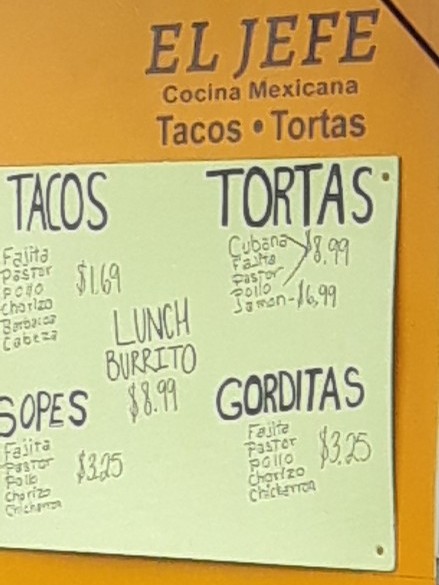 EL JEFE
Cocina Mexicana
Tacos • Tortas
TACOS
Fajita
Pastor
Pollo
Chorizo
Barbacoa
Cabeza
$1.69
TORTAS
Cubana
Fajita
Pastor
Pollo
$8.99
Jamon - $6.99
LUNCH
BURRITO
$8.99
SOPES
Fajita
Pastor
Pollo
Chorizo
Chicharron
$3.25
GORDITAS
Fajita
Pastor
Pollo
Chorizo
Chicharron
$3.25